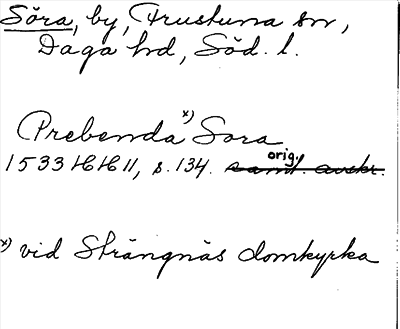 Söra, by, Frustuna sn,
Daga hd, Söd. l.
Prebenda x) Sora
orig.
1533 HH 11, s. 134. samt. avskr.
x) vid Strängnäs domkyrka